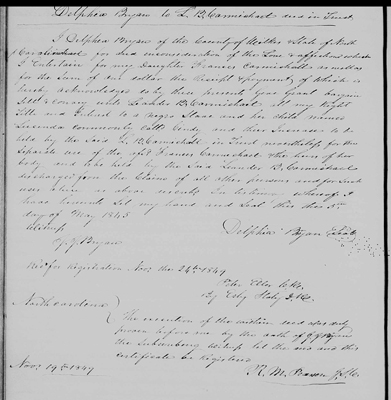 Delphia Bryan to L. B. Carmichael deed in Trust
I Delphia Bryan of the County of Wilkes State of North
Carolina for and in consideration of the Love & affection which
I entertain for my Daughter Frances Carmichael, as well as
for the Sum of one dollar the Receipt & payment of which is
hereby acknowledged do by these presents give Grant bargain
Sell & convey unto Leander B. Carmichael, all my Right
Title and Interest to a negro Slave and her child names
Lucinda commonly Call Cindy and their Increase to be
held by the said L. B. Carmichael in Trust nevertheless for the
Separate use of the sd Frances Carmichael the heirs of her
body and to be held by the Said Leander B. Carmichael
discharged from the Claims of all other persons and for such
uses alone as above recited In testimony whereof I
have hereunto Set my hand and Seal this the 5th
day of May 1845
Delphia Bryan Seal
Bryan
Rec for Registration Nov. the 24th 1849
North Carolina
The execution of the within deed was duly
proven before me by the oath of Bryan
the Subscribing witness let this and this
certificate be Registered
Nov. 19th 1849
R. M. Pearson